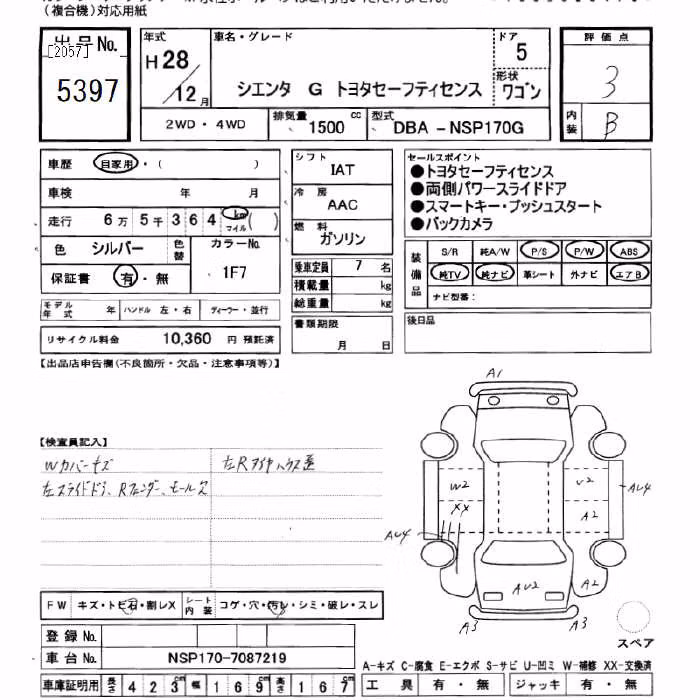 (複合機)対応用紙
出品No.
[2057]
5397
年式
H28/12月
車名・グレード
シエンタ G トヨタセーフティセンス
ドア
5
形状
ワゴン
評価点
3
内装
B
2WD・4WD
排気量 1500 cc
型式 DBA-NSP170G
車歴 自家用・( )
車検 年 月
走行 6万 5千 3 6 4 km マイル ( )
色 シルバー 色替 カラーNo. 1F7
保証書 有・無
モデル年式 年 ハンドル 左・右 ディーラー・並行
リサイクル料金 10,360 円 預託済
シフト
IAT
冷房
AAC
燃料
ガソリン
乗車定員 7 名
積載量 kg
総重量 kg
書類期限
月 日
セールスポイント
●トヨタセーフティセンス
●両側パワースライドドア
●スマートキー・プッシュスタート
●バックカメラ
装備品 S/R 純A/W P/S P/W ABS
純TV 純ナビ 革シート 外ナビ エアB
ナビ型番:
後日品
【出品店申告欄(不良箇所・欠品・注意事項等)】
【検査員記入】
Wカバーキズ
左Rタイヤハウス歪
左スライドドア、Rフェンダー、モールズ
FW キズ・トビ石・割レX シート内装 コゲ・穴・汚レ・シミ・破レ・スレ
登録No.
車台No. NSP170-7087219
車庫証明用 長さ 4 2 3cm 幅 1 6 9cm 高さ 1 6 7cm
A1
W2
U2
AU4
XX
A2
AU4
AU2
A2
A3
A3
スペア
A-キズ C-腐食 E-エクボ S-サビ U-凹ミ W-補修 XX-交換済
工具 有・無 ジャッキ 有・無